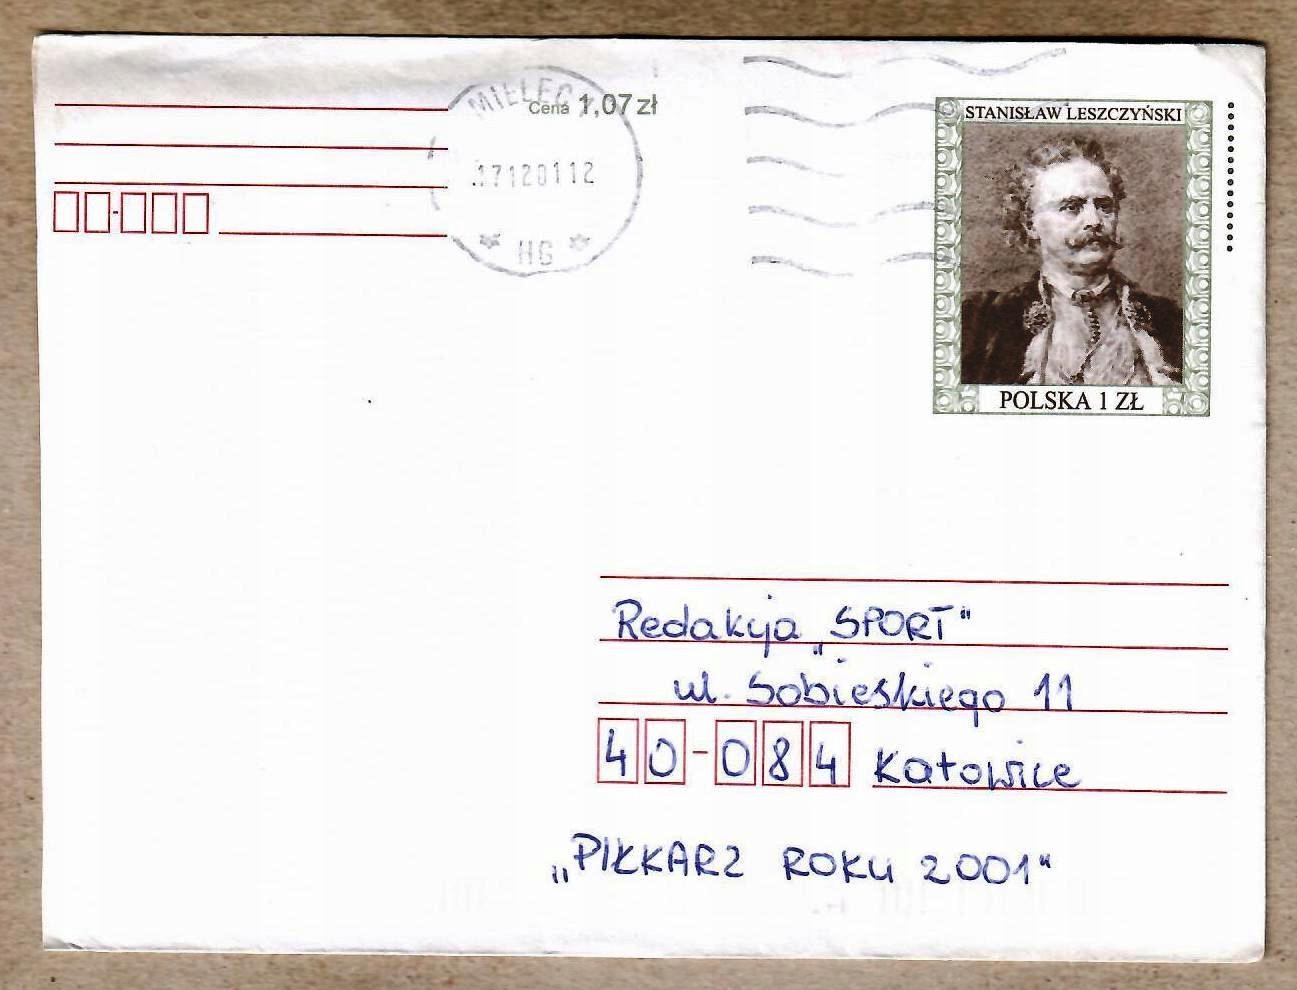 MIELEC 1
Cena 1,07 zł
.17120112
HG
STANISŁAW LESZCZYŃSKI
POLSKA 1 ZŁ
00-000
Redakcja „SPORT"
ul. Sobieskiego 11
40-084 Katowice
„PIŁKARZ ROKU 2001"